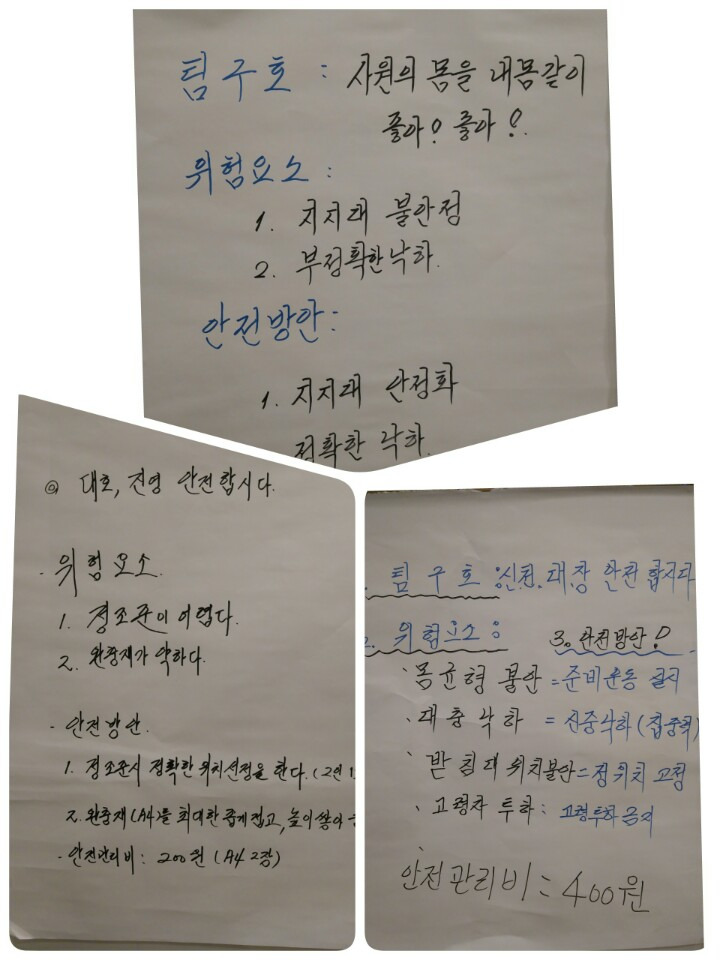 팀구호 : 사원의 몸을 내몸같이
좋아! 좋아!
위험요소 :
1. 지지대 불안정
2. 부정확한 낙하.
안전방안:
1. 지지대 안정화
정확한 낙하.
◎ 대호, 진영 안전합시다.
· 위험요소.
1. 정조준이 어렵다.
2. 완충재가 약하다.
· 안전방안.
1. 정조준시 정확한 위치선정을 한다. (2인 1
2. 완충재(A4)를 최대한 좁게 접고, 높이 쌓아
· 안전관리비 : 200원 (A4 2장)
팀 구호 : 안전 합시다
위험요소 : 3. 안전방안!
· 몸균형 불안 = 준비운동 실시
· 대충낙하 = 신중낙하 (집중력)
· 받침대 위치불안 = 정위치 고정
· 고령자 투하 : 고령투하금지
안전관리비 = 400원